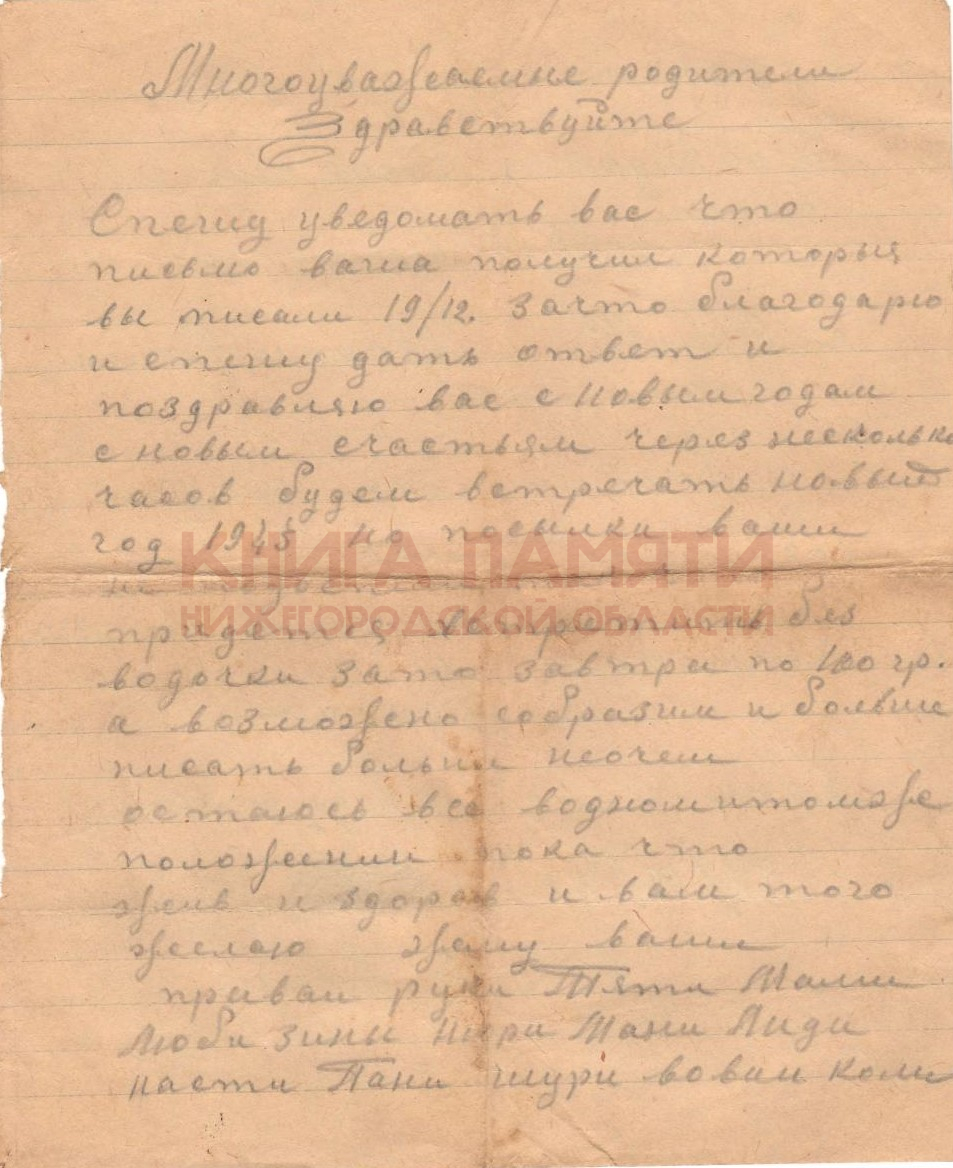 Многоуважаемые родители
Здравствуйте
Спешу уведомать вас что
письмо ваша получил которыя
вы писали 19/12. зачто благодарю
и спешу дать ответ и
поздравляю вас с новым годам
с новым счастьям через несколько
часов будем встречать новый
год 1945 но посылки ваши
КНИГА ПАМЯТИ
не
НИЖЕГОРОДСКОЙ ОБЛАСТИ
придетця встретить без
водочки зато завтра по 100 гр.
а возможено собразим и больше
писать больши неочем
остаюсь все водномитомже
положении пока что
жив и здоров и вам того
желаю жму ваши
праваи руки Тяти Мами
Люби зины Нюри Мани Лиди
насти Пани шури вовы коли